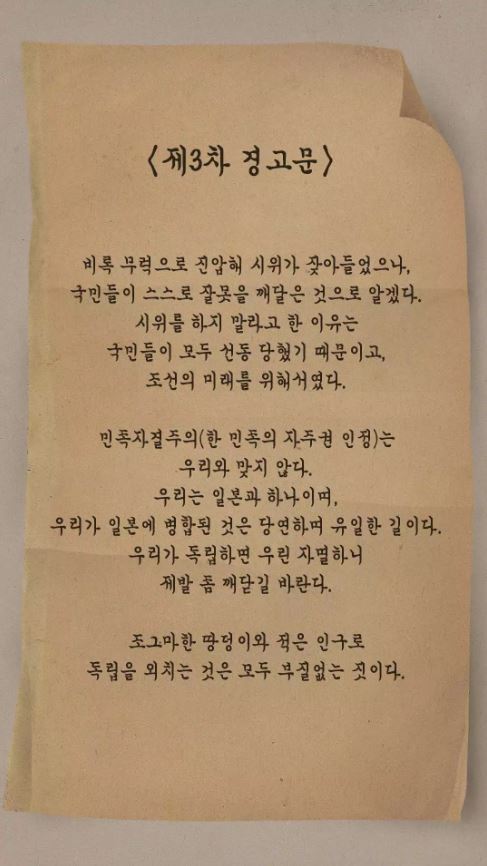 <제3차 경고문>
비록 무력으로 진압해 시위가 잦아들었으나,
국민들이 스스로 잘못을 깨달은 것으로 알겠다.
시위를 하지 말라고 한 이유는
국민들이 모두 선동 당했기 때문이고,
조선의 미래를 위해서였다.
민족자결주의(한 민족의 자주권 인정)는
우리와 맞지 않다.
우리는 일본과 하나이며,
우리가 일본에 병합된 것은 당연하며 유일한 길이다.
우리가 독립하면 우린 자멸하니
제발 좀 깨닫길 바란다.
조그마한 땅덩이와 적은 인구로
독립을 외치는 것은 모두 부질없는 짓이다.